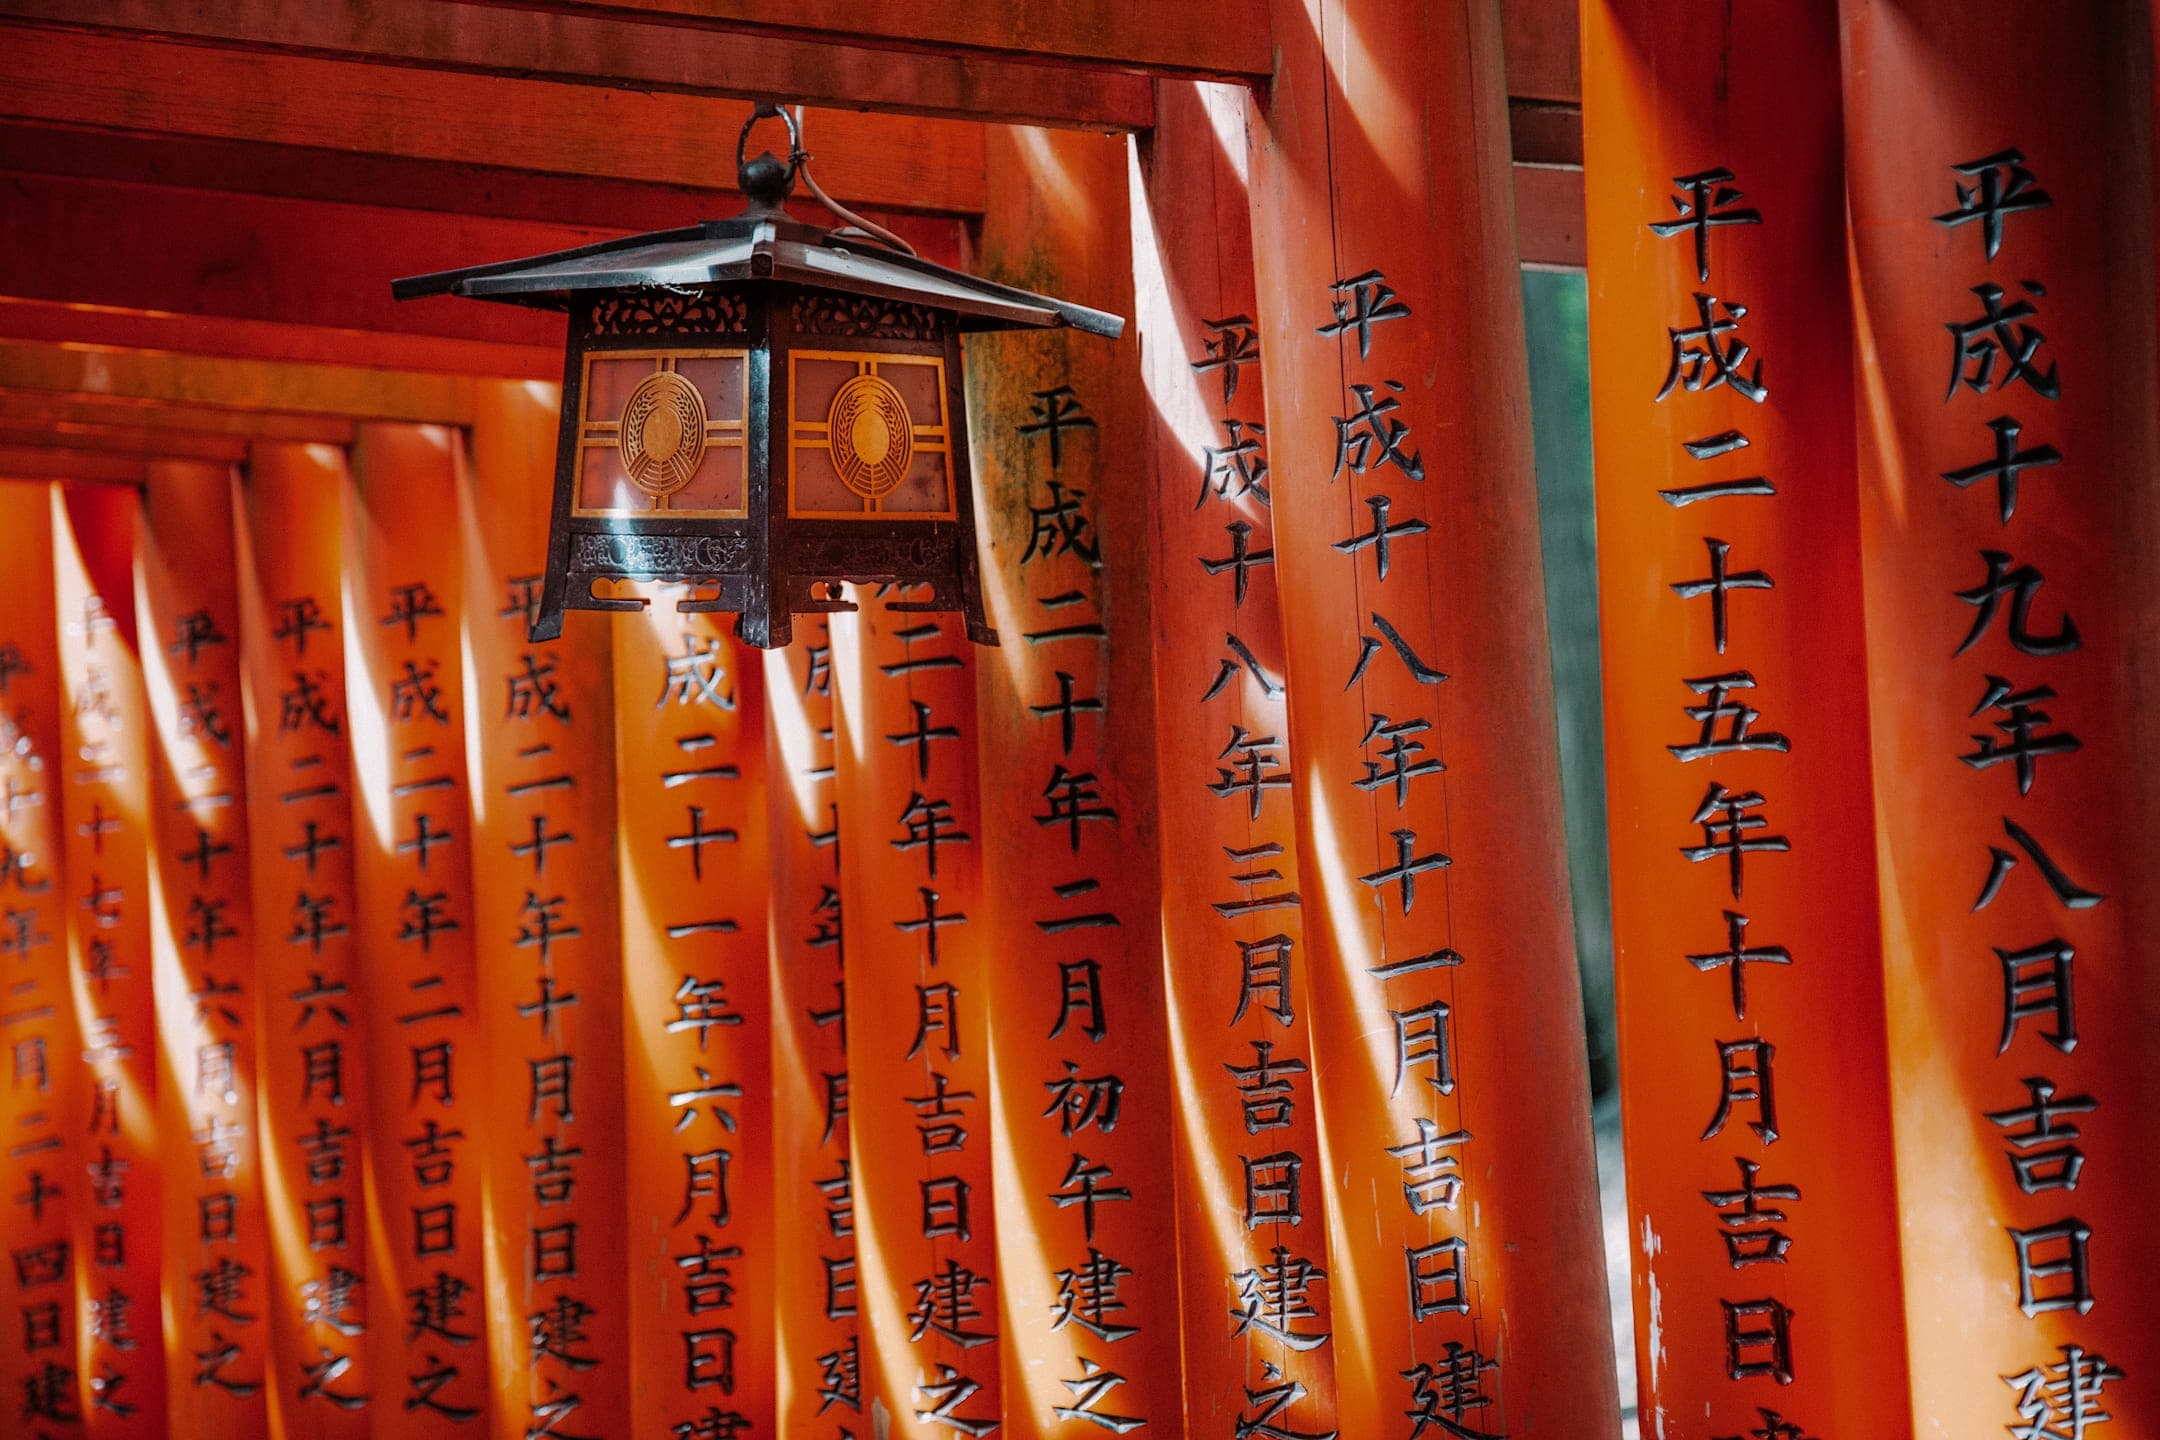 平成十九年八月吉日建
平成二十五年十月吉日
平成十八年十一月吉日建
平成十八年三月吉日建之
平成二十年二月初午建之
二十年十月吉日建之
成二十年十月吉日建
平成二十一年六月吉日建
平成二十年十月吉日建之
平成二十年二月吉日建之
平成二十年六月吉日建之
平成二十年六月吉日建之
平成二十七年月吉日建之
平成十九年二月二十四日建